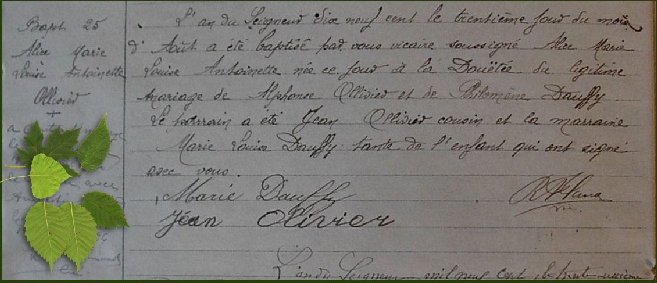 Bapt 25
Alice Marie
Louise Antoinette
Ollivier
+
L'an du Seigneur dix neuf cent le trentième jour du mois
d'Août a été baptisé par nous vicaire soussigné Alice Marie
Louise Antoinette née ce jour à la Douëtée du légitime
mariage de Alphonse Ollivier et de Philomène Dauffy
Le parrain a été Jean Ollivier cousin et la marraine
Marie Louise Dauffy tante de l'enfant qui ont signé
avec nous.
Marie Dauffy
Jean Olivier
L'an du Seigneur mil neuf cent le trente